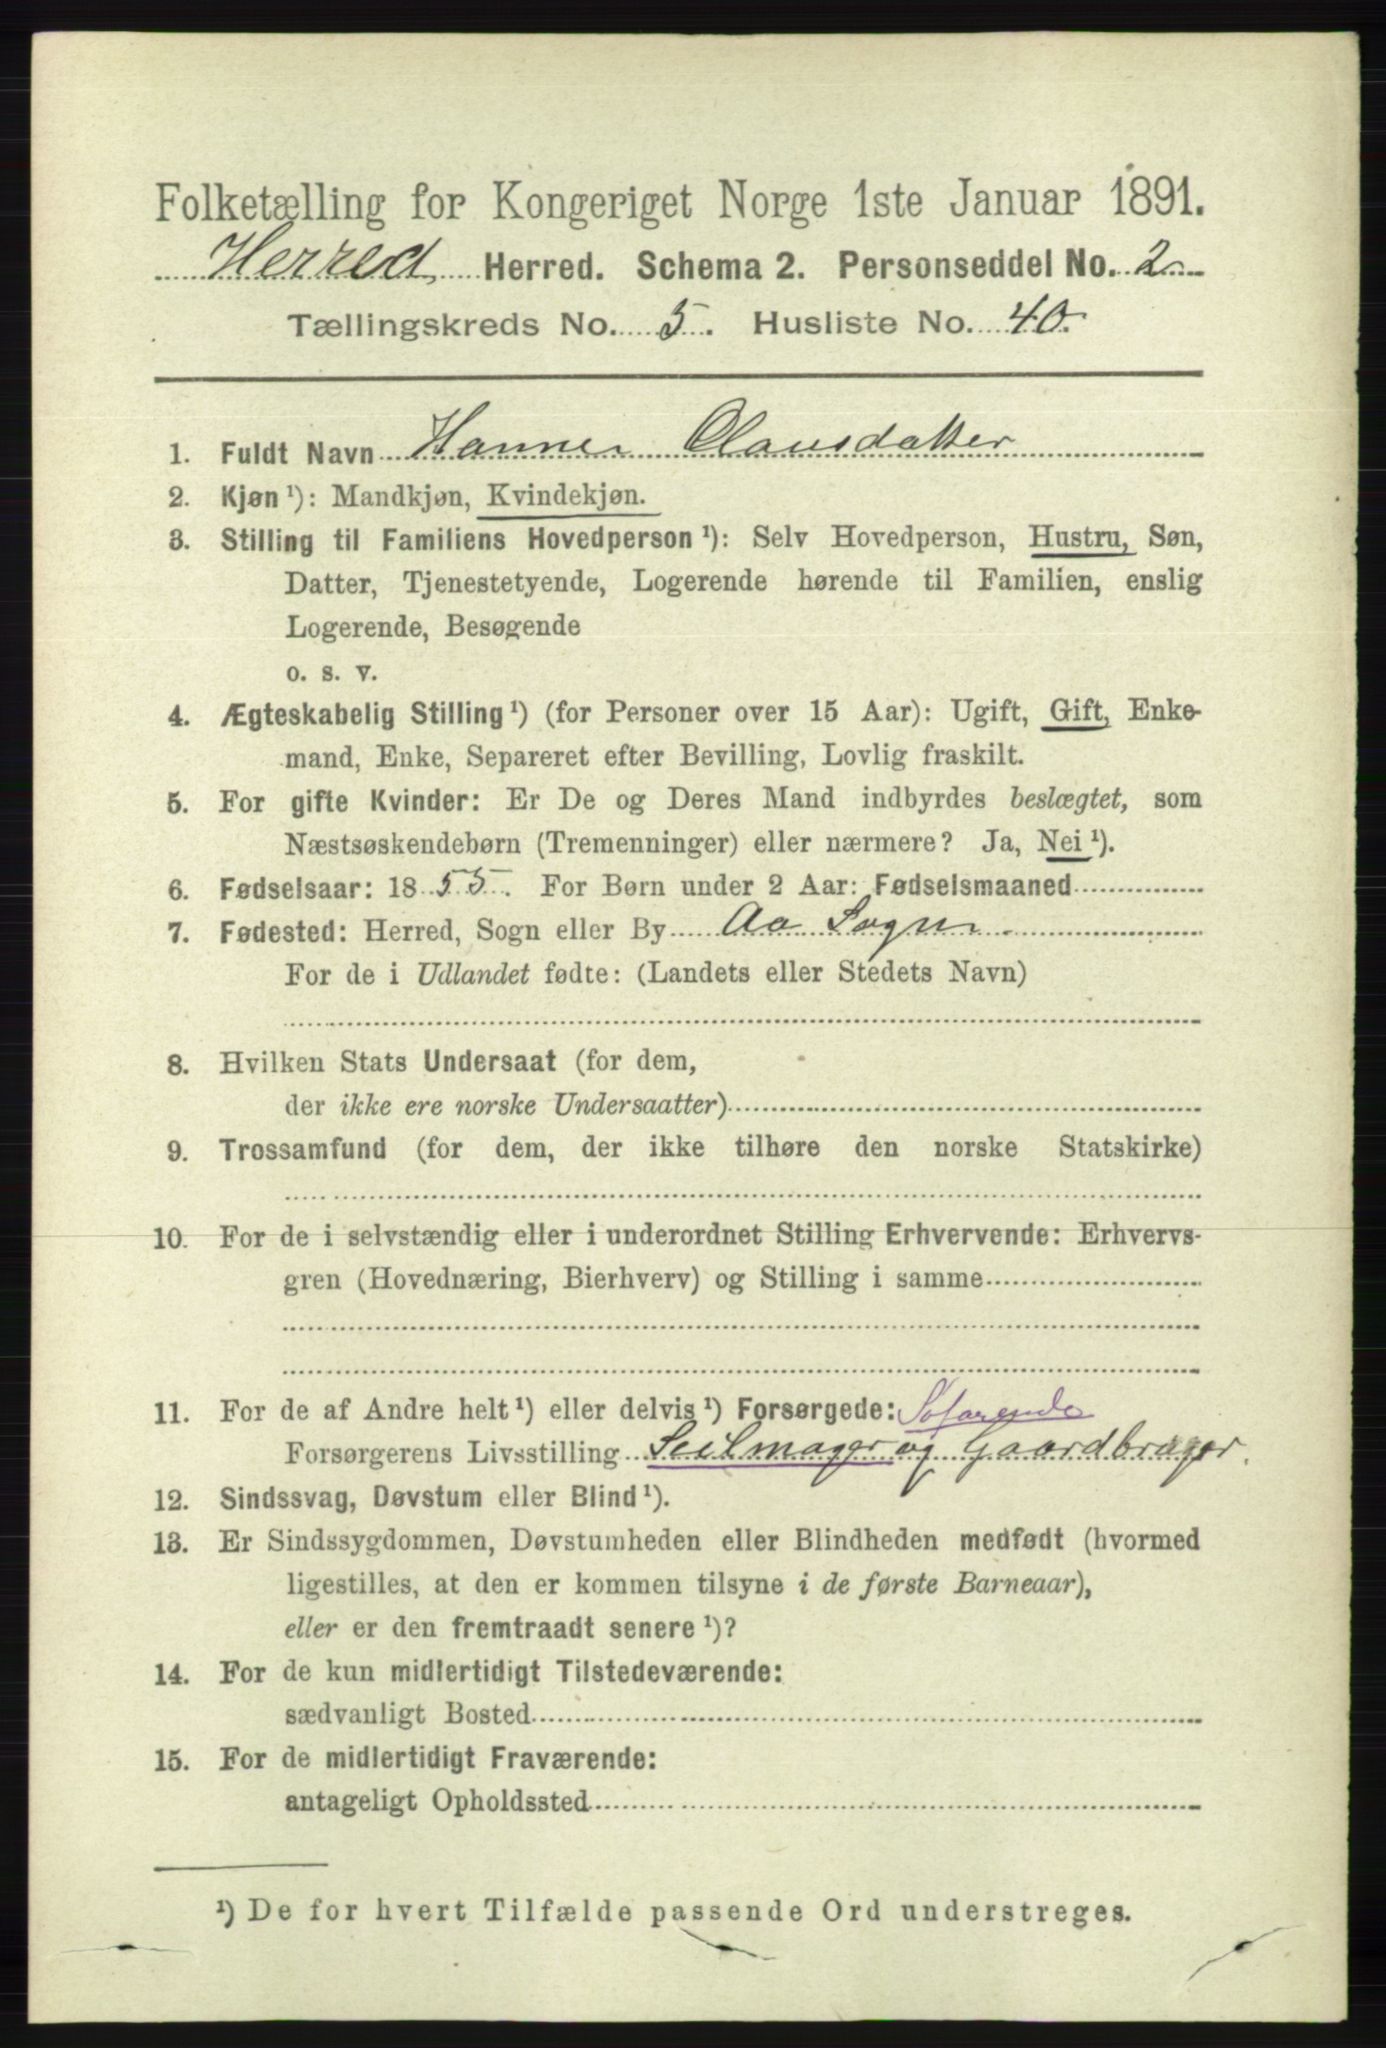 Folketælling for Kongeriget Norge 1ste Januar 1891.
Herred Herred. Schema 2. Personseddel No. 2
Tællingskreds No. 5. Husliste No. 40.
1. Fuldt Navn Hanne Olausdatter
2. Kjøn ¹): Mandkjøn, Kvindekjøn.
3. Stilling til Familiens Hovedperson ¹): Selv Hovedperson, Hustru, Søn,
Datter, Tjenestetyende, Logerende hørende til Familien, enslig
Logerende, Besøgende
o. s. v.
4. Ægteskabelig Stilling ¹) (for Personer over 15 Aar): Ugift, Gift, Enke-
mand, Enke, Separeret efter Bevilling, Lovlig fraskilt.
5. For gifte Kvinder: Er De og Deres Mand indbyrdes beslægtet, som
Næstsøskendebørn (Tremenninger) eller nærmere? Ja, Nei ¹).
6. Fødselsaar: 1855. For Børn under 2 Aar: Fødselsmaaned
7. Fødested: Herred, Sogn eller By Aa Sogn.
For de i Udlandet fødte: (Landets eller Stedets Navn)
8. Hvilken Stats Undersaat (for dem,
der ikke ere norske Undersaatter)
9. Trossamfund (for dem, der ikke tilhøre den norske Statskirke)
10. For de i selvstændig eller i underordnet Stilling Erhvervende: Erhvervs-
gren (Hovednæring, Bierhverv) og Stilling i samme
11. For de af Andre helt ¹) eller delvis ¹) Forsørgede: Søfarende
Forsørgerens Livsstilling Seilmager og Gaardbruger.
12. Sindssvag, Døvstum eller Blind ¹).
13. Er Sindssygdommen, Døvstumheden eller Blindheden medfødt (hvormed
ligestilles, at den er kommen tilsyne i de første Barneaar),
eller er den fremtraadt senere ¹)?
14. For de kun midlertidigt Tilstedeværende:
sædvanligt Bosted
15. For de midlertidigt Fraværende:
antageligt Opholdssted
¹) De for hvert Tilfælde passende Ord understreges.